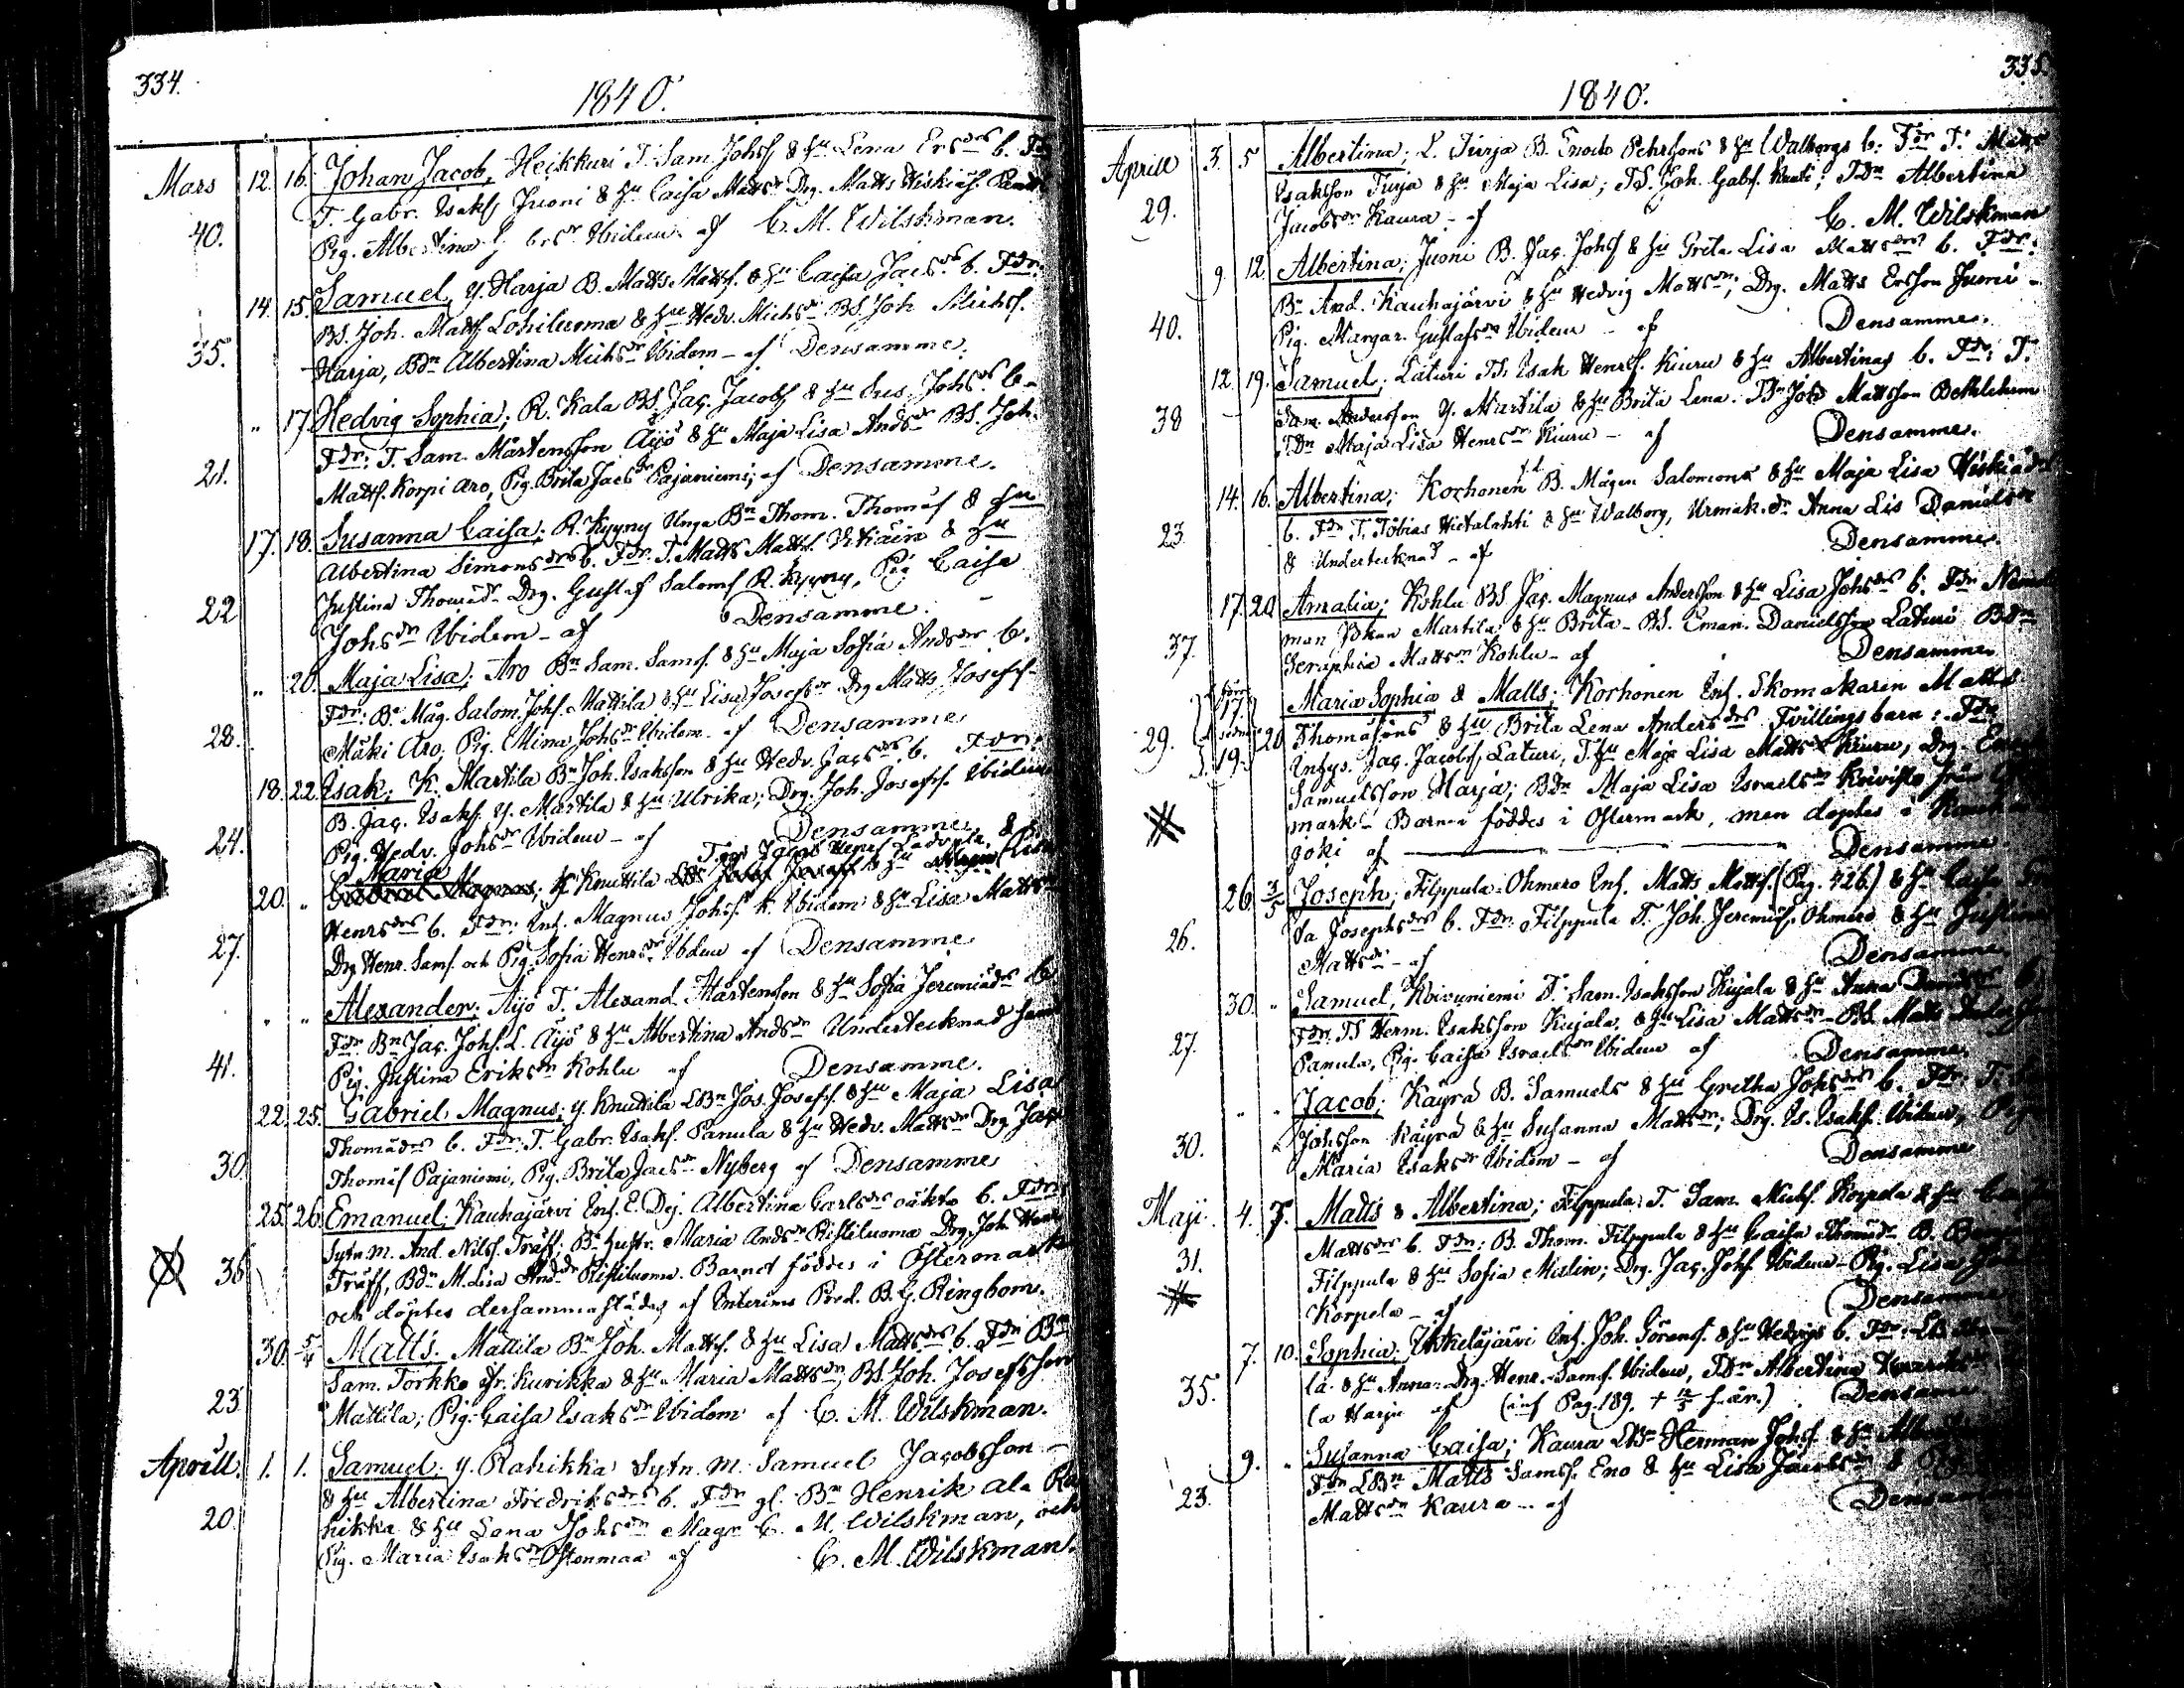 334.
1840.
Mars 12. 16. Johan Jacob, Heikkuri T. Sam. Johsf & hu Lena Ersdrs b. Fdr
T. Gabr. Esaksf Juoni & hu Caisa Mattsdr Drg. Matts Hiskiäsf.
40. Pig. Albertina Ibidem af C. M. Wilskman.
14. 15. Samuel, Y. Harja B. Matts Mattsf. & hu Caisa Jacsdrs b. Fdr.
BS. Joh. Mattsf Lohiluoma & hu Hedv. Michsdr BS Joh Michsf.
35. Harja, Bdr Albertina Michsdr Ibidem – af Densamme.
„ 17. Hedvig Sophia; R. Kala BS Jac. Jacobsf & hu Sus. Johsdrs b.
Fdr: T. Sam. Mårtensson Äijö & hu Maja Lisa Andsdr BS. Joh.
21. Mattsf. Korpi Aro, Pig. Brita Jacsdr Pajaniemi; af Densamme.
17. 18. Susanna Caisa; R. Kyyny Unga Bn Thom. Thomäsf & hu
Albertina Simonsdrs b. Fdr. T. Matts Mattsf. & hu
Justina Thomädr Drg. Gustaf Salomsf R. Kyyny, Pig Caisa
22 Johsdr Ibidem – af Densamme.
„ 20. Maja Lisa; Aro Bn Sam. Samsf. & hu Maja Sofia Andsdr b.
Fdr: Bn Måg. Salom. Johsf. Mattila & hu Lisa Josefsdr Drg Matts Josefsf.
28. Mäki Aro, Pig. Mina Johsdr Ibidem. af Densamme
18. 22. Esak; K. Martila Bn Joh. Esaksson & hu Hedv. Jacsdrs b. Fdr:
B. Jac. Esaksf. Y. Martila & hu Ulrika; Drg. Joh. Josefsf. Ibidem
24. Pig. Hedv. Johsdr Ibidem – af Densamme
Maria Jacob Henrsf &
20. „ Magnus; Y. Knuttila & hu Lisa
Henrsdrs b. Fdr: Inh. Magnus Johsf. K. Ibidem & hu Lisa Mattsdr
27. Drg Henr. Samsf. och Pig. Sofia Henrsdr Ibidem af Densamme
„ „ Alexander; Äijö T. Alexand. Mårtenson & hu Sofia Jeremiädrs b
Fdr. Bn Jac. Johsf. L. Äijö & hu Albertina Andsdr Undertecknad samt
41. Pig. Justina Eriksdr Kohlu af Densamme.
22. 25. Gabriel Magnus; Y. Knuttila LBn Jos. Josefsf. & hu Maja Lisa
Thomädrs b. Fdr: T. Gabr. Esaksf. Panula & hu Hedv. Mattsdr Drg Jac
30. Thomäsf Pajaniemi, Pig. Brita Jacsdr Nyberg af Densamme
25. 26. Emanuel; Kauhajärvi Inh. E. Dej. Albertina Carlsdrs oäkta b. Fdr:
Sytn. M. And. Nilsf. Träff; Bn hustr. Maria Andsdr Ristiluoma Drg. Joh.
36 Träff, Bdr M. Lisa Andsdr Ristiluoma. Barnet föddes i Östermark
och döptes dersammastädes, af Interims Pred. B. G. Ringbom.
30. 5/4 Matts. Mattila Bn Joh. Mattsf. & hu Lisa Mattsdrs b. Fdr Bn
Sam. Torkko fr. Kurikka & hu Maria Mattsdr, BS Joh. Josefsson
23 Mattila; Pig. Caisa Esaksdr Ibidem af C. M. Wilskman.
Aprill. 1. 1. Samuel. Y. Rahikka Sytn. M. Samuel Jacobsson –
& hu Albertina Fredriksdrs b. Fdr gl. Bn Henrik Ala Ra
20. hikka & hu Lena Johsdr Magr C. M. Wilskman, och
Pig. Maria Esaksdr Ostenmaa af C. M. Wilskman.
335.
1840.
Aprill 3. 5 Albertina; L. Turja B. Enoch Pehrsons & hu Walborgs b. Fdr T. Matts
Esaksson Turja & hu Maja Lisa; TS. Joh. Gabsf. Tdr Albertina
29. Jacobsdr Kaura – af C. M. Wilskman
9. 12. Albertina; Juoni B. Jac. Johsf & hu Greta Lisa Mattsdrs b. Fdr.
Bn And. Kauhajärvi & hu Hedvig Mattsdr; Drg. Matts Ersson Juoni –
40. Pig. Margar. Gustafsdr Ibidem – af Densamme.
12. 19. Samuel; Laturi TS. Esak Henrsf. Kiuru & hu Albertinas b. Fdr: T.
Sam. Andersson Y. Martila & hu Brita Lena. Joh Mattsson Bethlehem
38 Tdr Maja Lisa Henrsdr Kiuru – af Densamme.
14. 16. Albertina; Korhonen B. Mågen Salomons & hu Maja Lisa Hiskiädrs
23 b. Fdr T. Tobias Hietalahti & hu Walborg, Urmak. dr Anna Lis Danielsdr
& Undertecknad – af Densamme.
17. 20. Amalia; Kohlu BS Jac. Magnus Andersson & hu Lisa Johsdrs b. Fdr
man Johan Martila & hu Brita – BS. Eman. Danielsson Laturi Bdr
37. Seraphia Mattsdr Kohlu – af Densamme
17. Maria Sophia & Matts; Korhonen Inh. Skomakaren Matts
29. 19. 20. Thomäsons & hu Brita Lena Andersdrs Tvillingsbarn: Fdr
Inhys. Jac. Jacobsf. Laturi, T. hu Maja Lisa Mattsdr Kiuru, Drg.
Samuelsson Harja; Bdr Maja Lisa Israelsdr från
mark – Barnen föddes i Östermark, men döptes i
joki af Densamme.
26. 3/5 Joseph; Filppula Ohmero Inh. Matts Mattsf. (Pag. 426.) & hu Caisa
Josephsdrs b. Fdr: Filppula T. Joh. Jeremiäsf. Ohmero & hu Justina
26. Mattsdr – af Densamme.
30. „ Samuel; Koivuniemi T. Sam. Esaksson Kujala & hu Anna
Fdr: TS Herm. Esaksson Kujala, & hu Lisa Mattsdr – BS. Matts
27. Panula, Pig. Caisa Israelsdr Ibidem af Densamme.
„ „ Jacob; Käyrä B. Samuels & hu Gretha Johsdrs b. Fdr. T.
Johsson Käyrä & hu Susanna Mattsdr; Drg. Es. Esaksf. Ibidem, Pig
30. Maria Esaksdr Ibidem – af Densamme
Maji. 4. 7. Matts & Albertina; Filppula; T. Sam. Michsf. Korpela & hu
Mattsdrs b. Fdr: B. Thom. Filppula & hu Caisa Thomädr B.
31. Filppula & hu Sofia Malin; Drg. Jac. Johsf. Ibidem – Pig. Lisa
Korpela – af Densamme
7. 10. Sophia; Ikkeläjärvi Inh. Joh. Göransf. & hu Hedvigs b. Fdr:
la & hu Anna – Drg. Henr. Samsf. Ibidem, Tdr Albertina
35. la Harju af (inf Pag. 189. Densamme
9. „ Susanna Caisa; Kaura LBn Herman Johsf & hu
Fdr LBn Matts Samsf. Eno & hu Lisa Jacobsdr &
23. Mattsdr Kaura – af Densamme